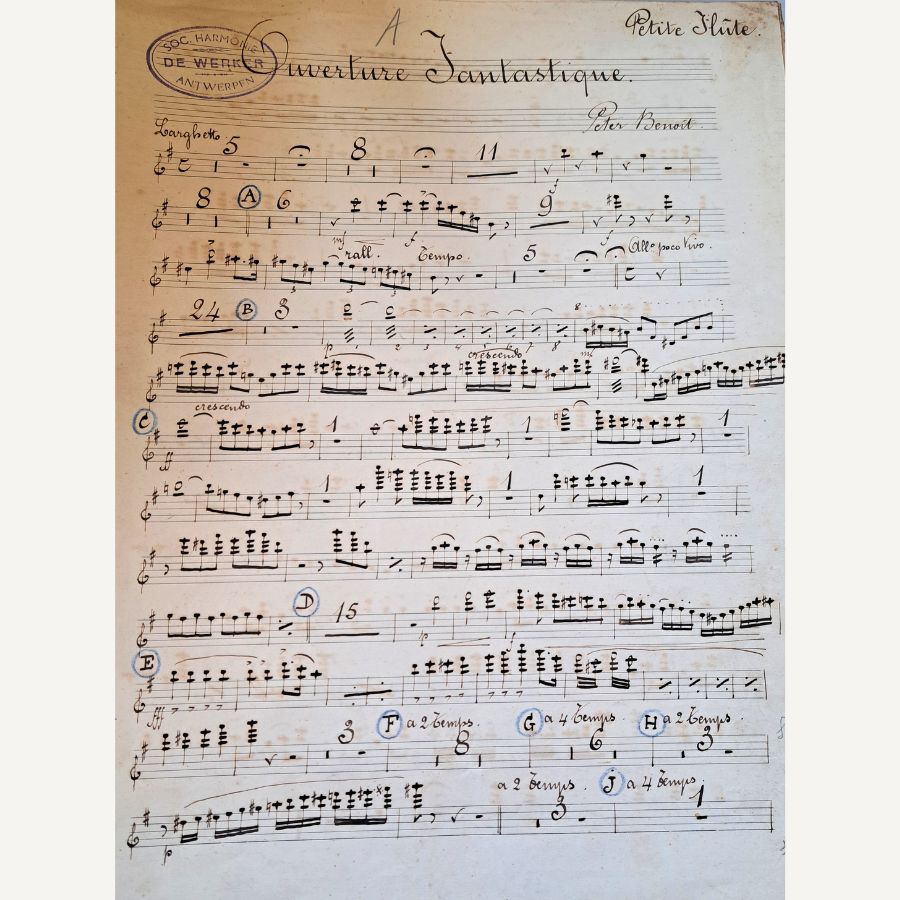 A
Petite Flûte.
SOC. HARMONIE
DE WERKER
ANTWERPEN
Ouverture Fantastique.
Peter Benoit.
Larghetto
5 8 11
f
8 A 6 9
mf f f
rall. Tempo. 5 Allo poco Vivo.
3 3
24 B 3 8
p 1 2 3 4 5 6 7 8
crescendo mf
crescendo
C 1 1 1
ff
1 1 1
D
15
p f
E
fff
3 F a 2 Temps. 8 G a 4 Temps. 6 H a 2 Temps. 3
a 2 Temps. 3 J a 4 Temps. 1
p